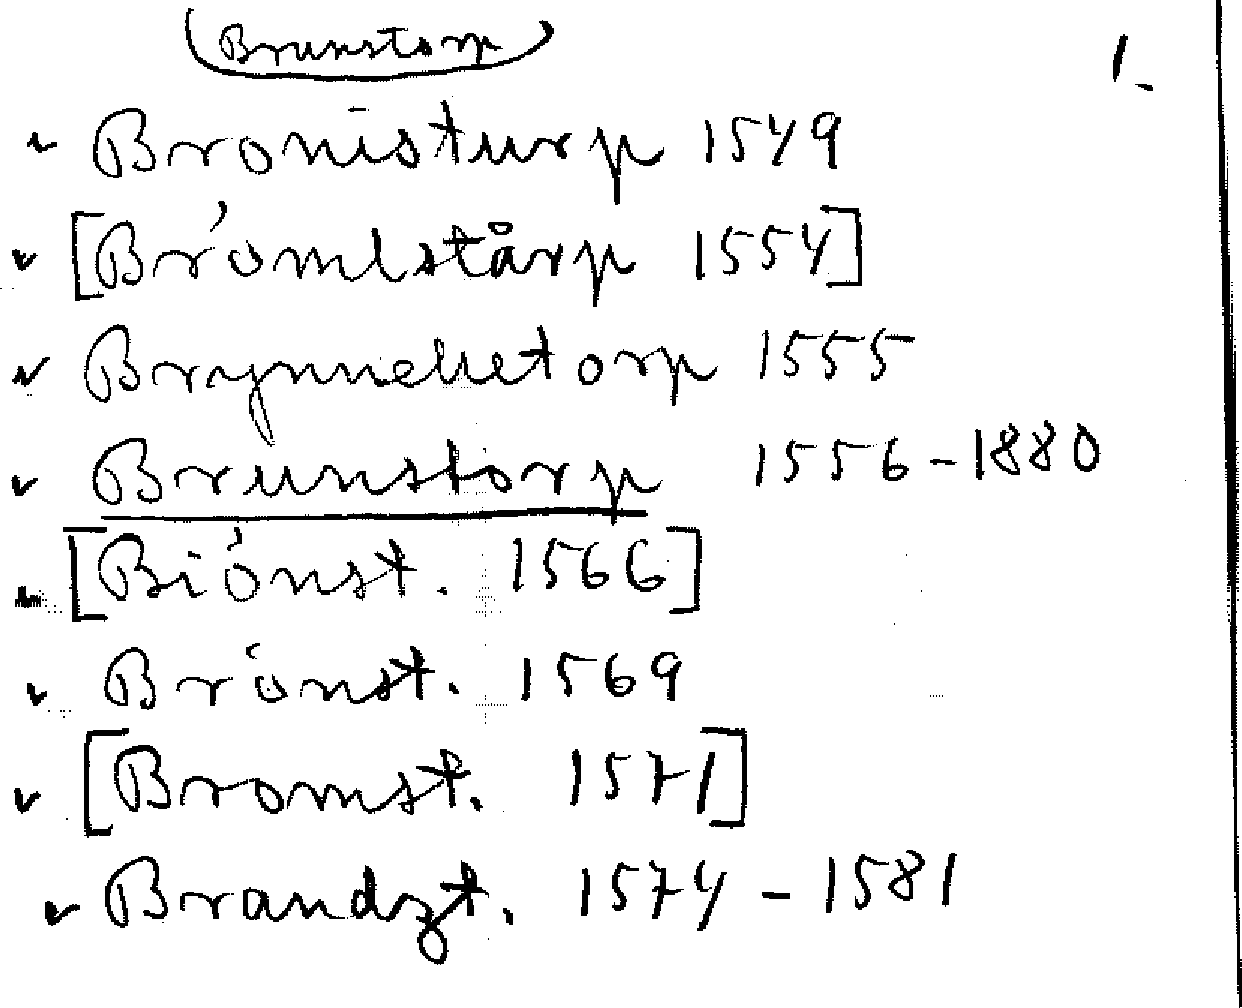 (Brunstorp) 1.
Bronisturp 1549
[Brómlstårp 1554]
Brynneketorp 1555
Brunstorp 1556-1880
[Biónst. 1566]
Brónst. 1569
[Bromst. 1571]
Brandzt. 1574-1581